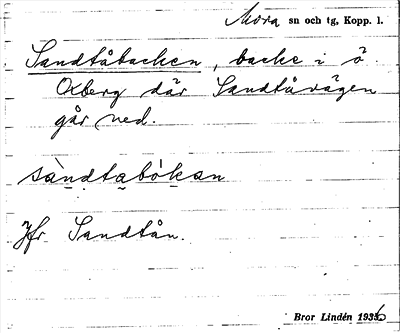 Mora sn och tg, Kopp. l.
Sandtåbacken, backe i ö.
Oxberg där Sandtåvägen
går ned.
sàndtabókan
Jfr Sandtån.
Bror Lindén 1936